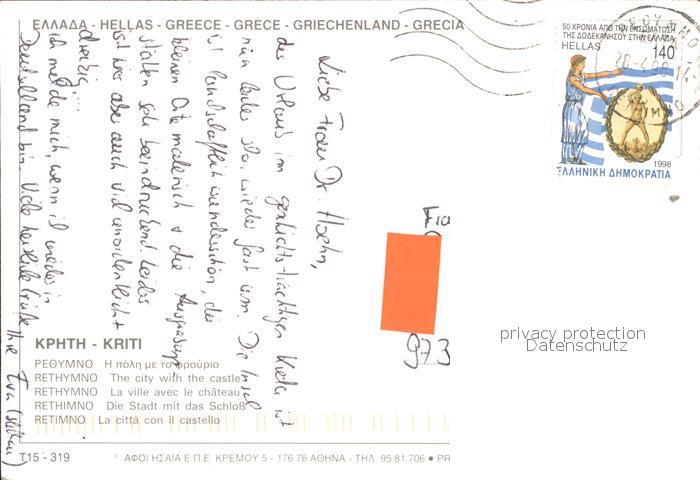 ΕΛΛΑΔΑ - HELLAS - GREECE - GRÈCE - GRIECHENLAND - GRECIA
50 ΧΡΟΝΙΑ ΑΠΟ ΤΗΝ ΕΝΣΩΜΑΤΩΣΗ
ΤΗΣ ΔΩΔΕΚΑΝΗΣΟΥ ΣΤΗΝ ΕΛΛΑΔΑ
HELLAS 140
1998
ΕΛΛΗΝΙΚΗ ΔΗΜΟΚΡΑΤΙΑ
Liebe Frau Dr. Hoehn,
der Urlaub im geschichtsträchtigen Kreta ist
nun leider schon wieder fast um. Die Insel
ist landschaftlich wunderschön, die
kleinen Orte malerisch & die Ausgrabungs-
stätten sehr beeindruckend. Leider
ist es aber auch viel unordentlich &
dreckig...
ich melde mich, wenn ich wieder in
Deutschland bin. Viele herzliche Grüße Ihre Eva
973
privacy protection
Datenschutz
ΚΡΗΤΗ - KRITI
ΡΕΘΥΜΝΟ Η πόλη με το φρούριο
RETHYMNO The city with the castle
RETHYMNO La ville avec le château
RETHIMNO Die Stadt mit das Schloß
RETIMNO La città con il castello
T15 - 319 ΑΦΟΙ ΗΣΑΙΑ Ε.Π.Ε. ΚΡΕΜΟΥ 5 - 176 76 ΑΘΗΝΑ - ΤΗΛ. 95.81.706 • PR